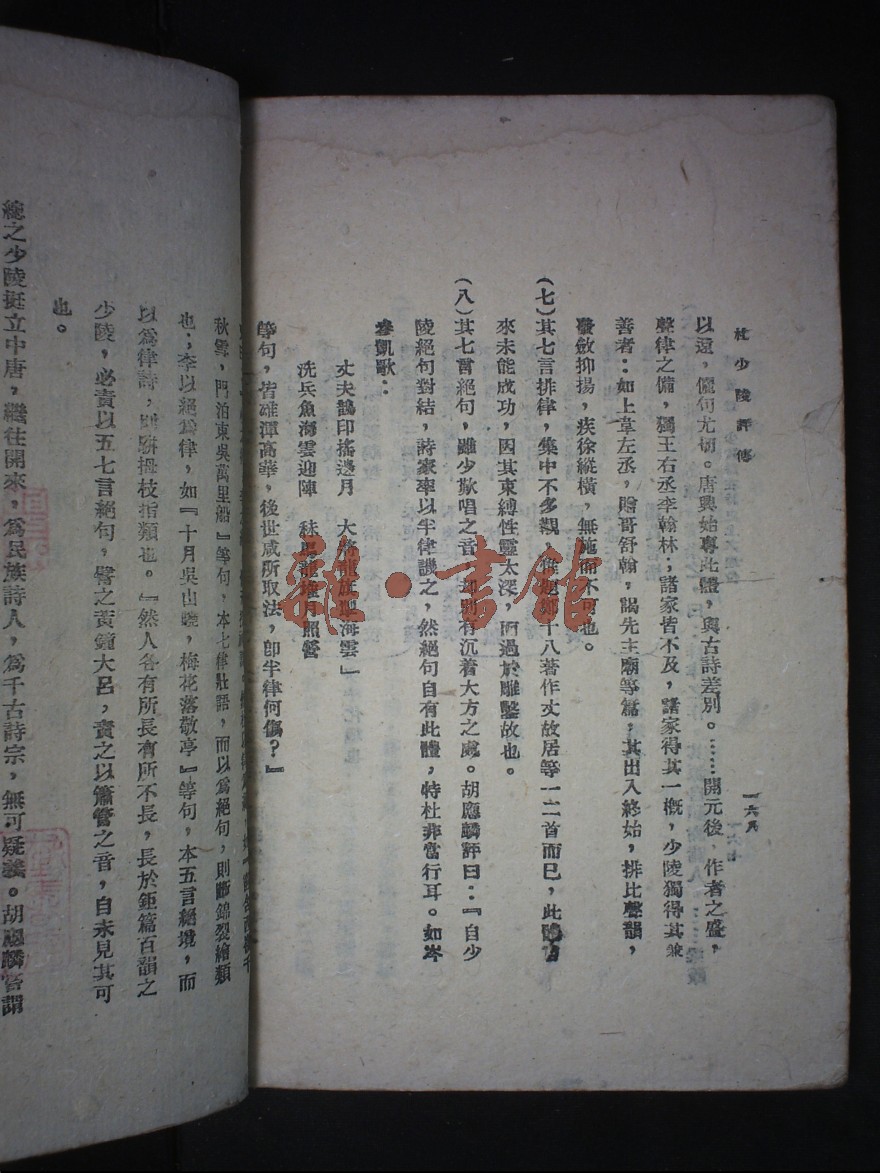 杜少陵評傳
一六八
以還，儷句尤切。唐興始專此體，與古詩差別。……開元後，作者之盛，
聲律之備，獨王右丞李翰林；諸家皆不及，諸家得其一概，少陵獨得其兼
善者：如上韋左丞，贈哥舒翰，謁先主廟等篇；其出入終始，排比聲韻，
發斂抑揚，疾徐縱橫，無施而不可也。
(七)其七言排律，集中不多觀，十八著作丈故居等一二首而已，此體
來未能成功，因其束縛性靈太深，而過於雕鑿故也。
(八)其七言絕句，雖少歎唱之音，却別有沉着大方之處。胡應麟評曰：『自少
陵絕句對結，詩家率以半律譏之，然絕句自有此體，特杜非當行耳。如岑
參凱歌：
丈夫鵲印搖邊月　大將龍旗掣海雲」
洗兵魚海雲迎陣　秣馬龍堆月照營
等句，皆雄渾高華，後世咸所取法，卽半律何傷？』
秋雪，門泊東吳萬里船』等句，本七律壯語，而以爲絕句，則斷錦裂繒類
也；李以絕爲律，如『十月吳山曉，梅花落敬亭』等句，本五言絕境，而
以爲律詩，則駢拇枝指類也。『然人各有所長有所不長，長於鉅篇百韻之
少陵，必責以五七言絕句，譬之黃鐘大呂，責之以簫管之音，自未見其可
也。
總之少陵挺立中唐，繼往開來，爲民族詩人，爲千古詩宗，無可疑義。胡應麟嘗謂
雜·書館